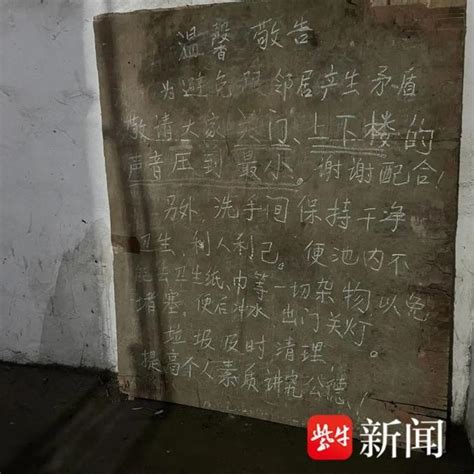 温馨敬告
为避免跟邻居产生矛盾
敬请大家关门、上下楼的
声音压到最小。谢谢配合!
另外,洗手间保持干净
卫生,利人利己。便池内不
去卫生纸、巾等一切杂物以免
堵塞,便后冲水 出门关灯。
垃圾及时清理,
提高个人素质讲究公德!
紫牛新闻